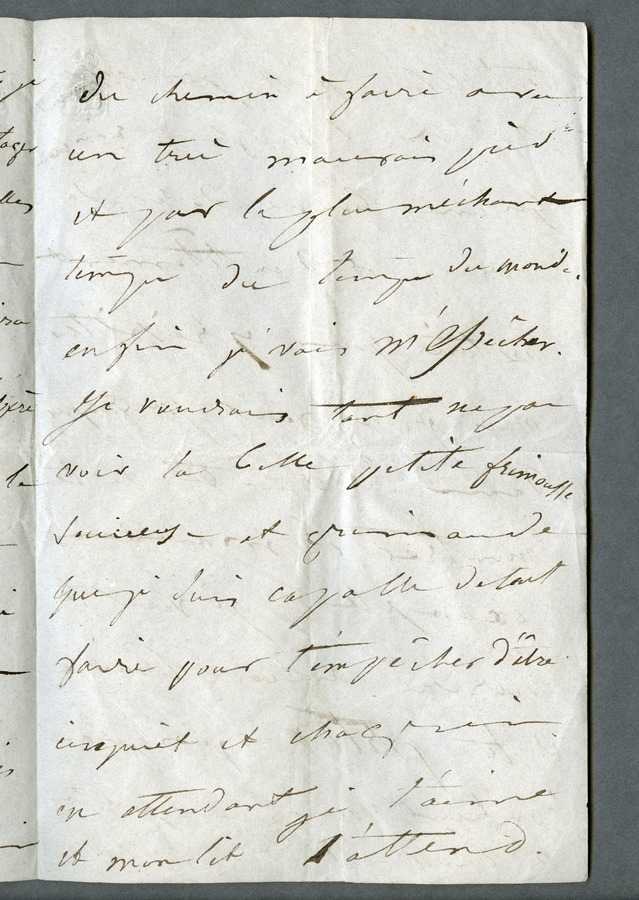 du chemin à faire avec
un très mauvais pied
et par le plus méchant
temps du temps du monde.
enfin je vais m'dépêcher.
Je voudrais tant ne pas
voir ta belle petite frimousse
soucieuse et grimaude
que je suis capable de tout
faire pour t'empêcher d'être
inquiet et chagrin
en attendant je t'aime
et mon lit t'attend.